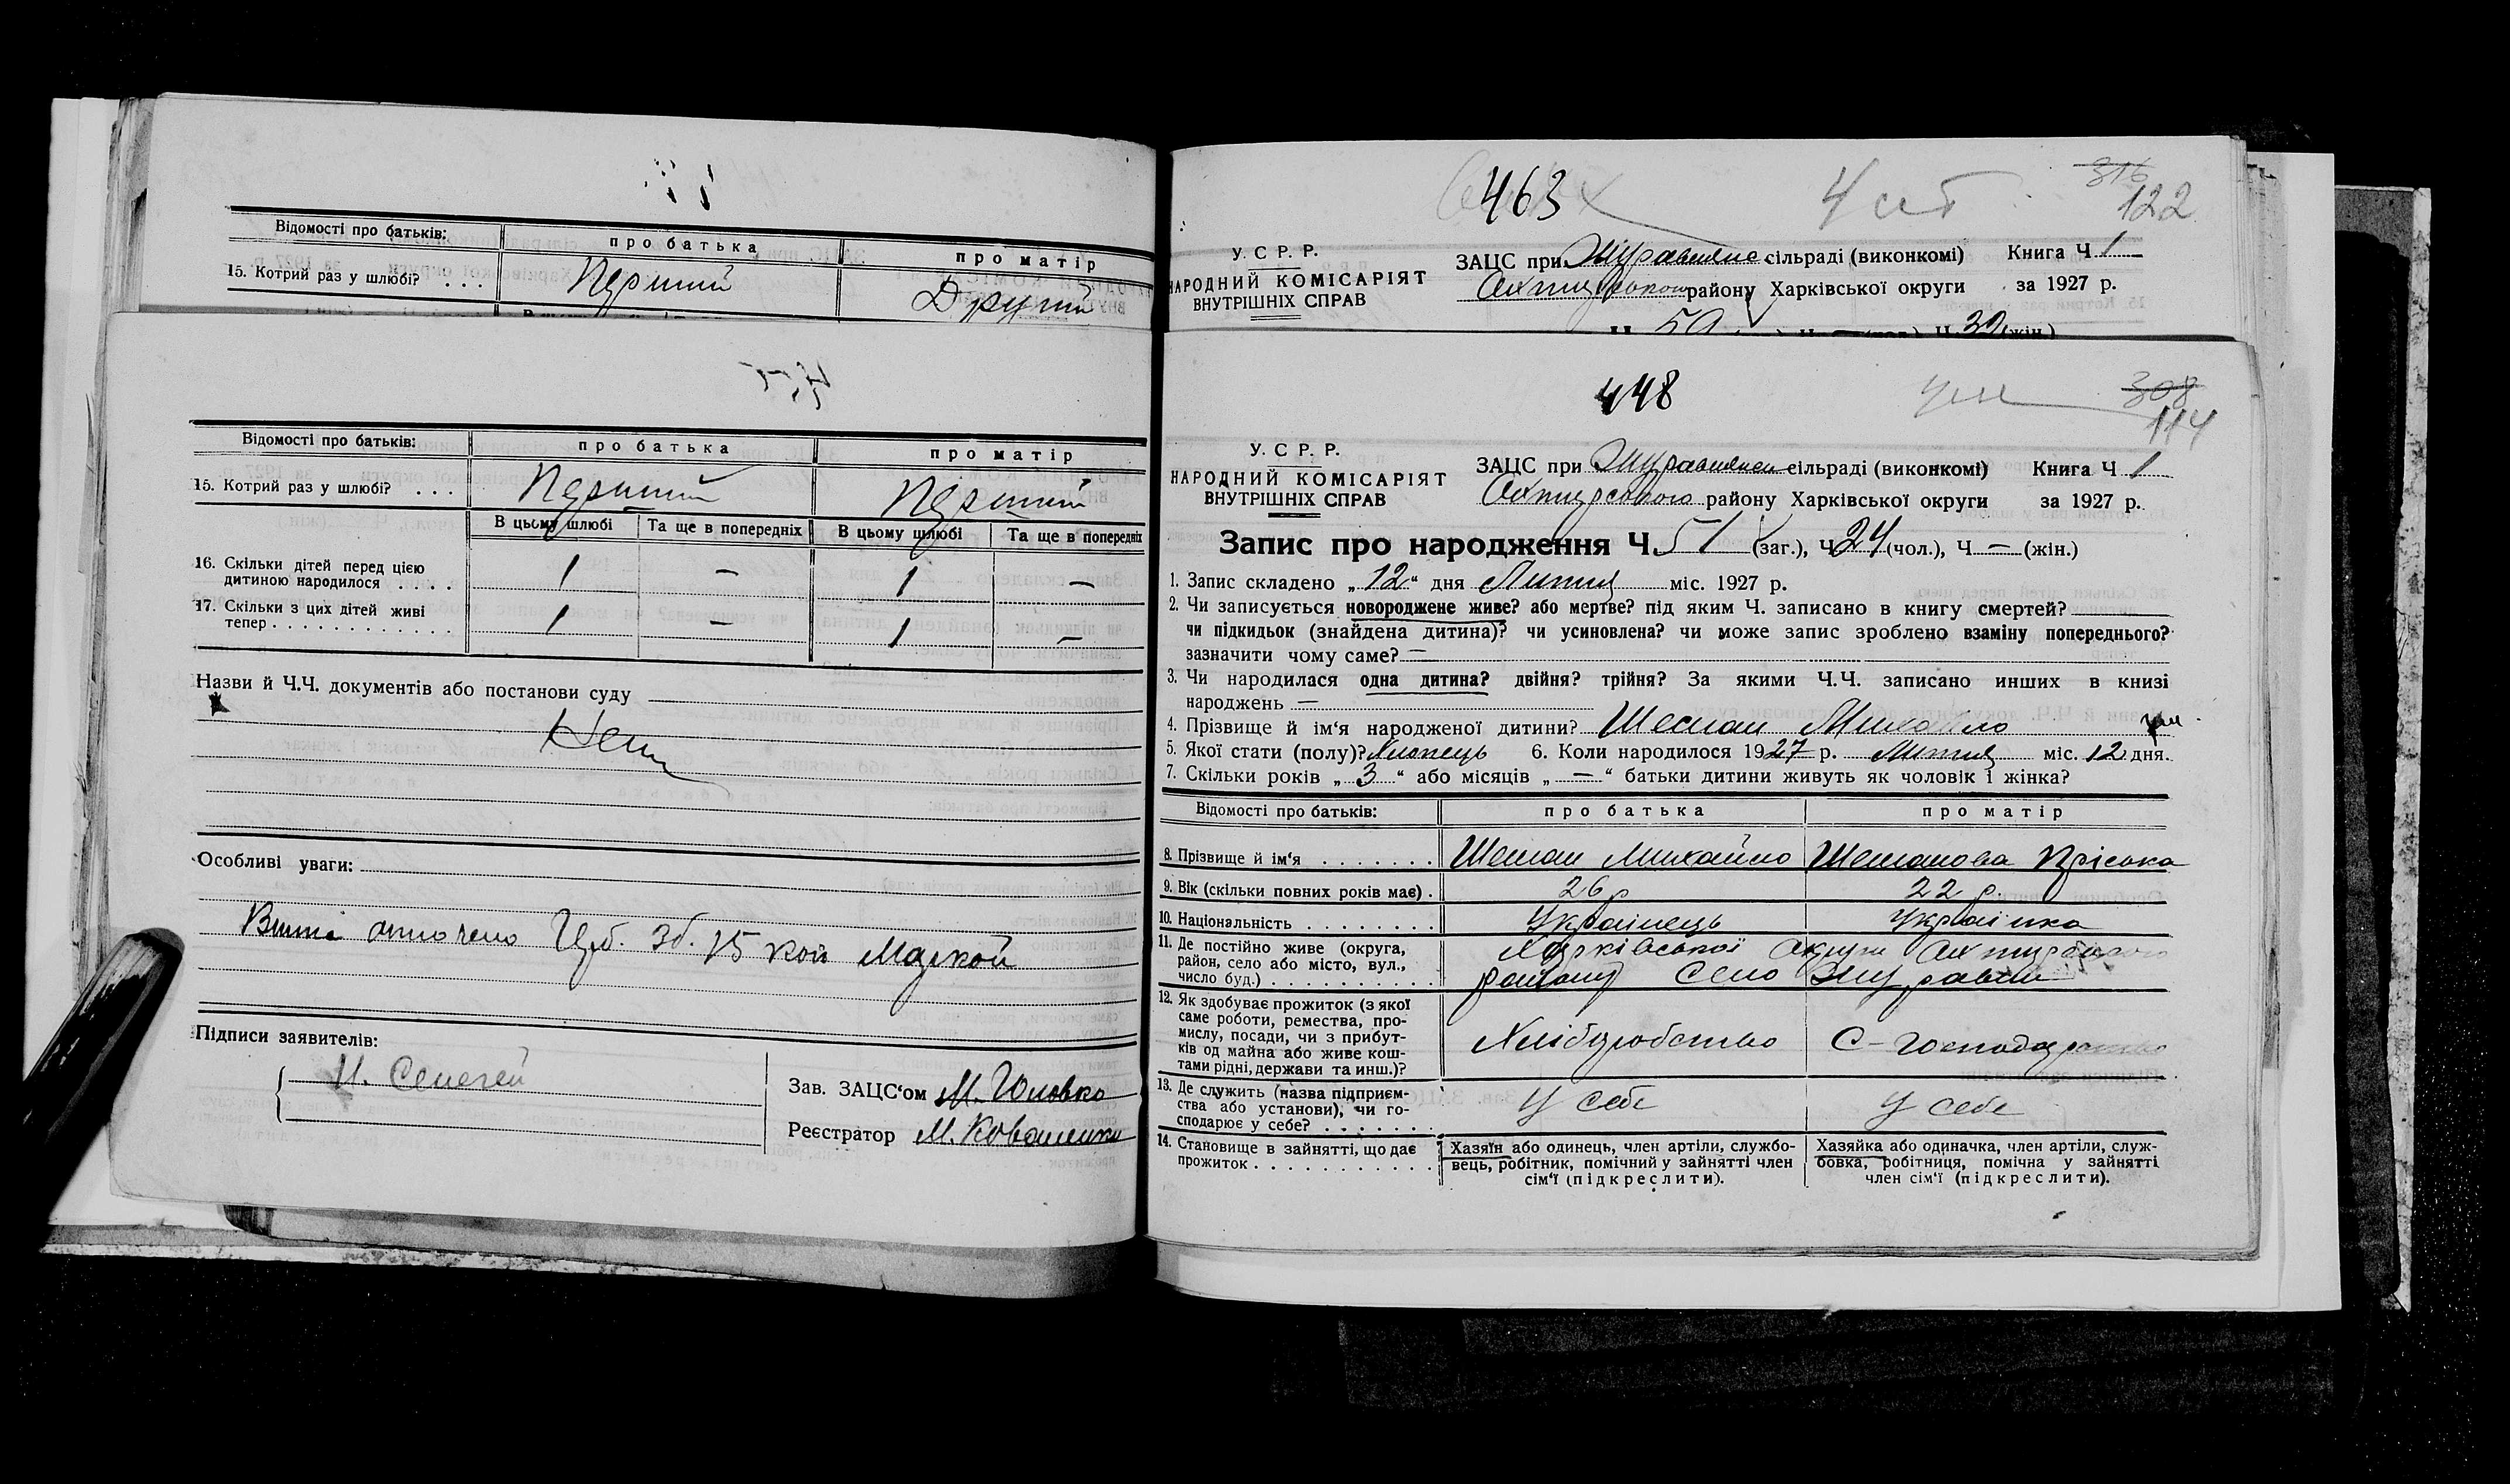 Відомості про батьків: про батька про матір
15. Котрий раз у шлюбі? . . . Перший Другий
463 4
316
122
У. С. Р. Р.
НАРОДНИЙ КОМІСАРІЯТ
ВНУТРІШНІХ СПРАВ
ЗАЦС при сільраді (виконкомі) Книга Ч 1
району Харківської округи за 1927 р.
Відомості про батьків: про батька про матір
15. Котрий раз у шлюбі? . . . Перший Перший
В цьому шлюбі Та ще в попередніх В цьому шлюбі Та ще в попередніх
16. Скільки дітей перед цією
дитиною народилося . . . . 1 — 1 —
17. Скільки з цих дітей живі
тепер . . . . . . . . . . . . . 1 — 1 —
Назви й Ч.Ч. документів або постанови суду
Особливі уваги:
Зб. 15 коп маркой
Підписи заявителів:
Зав. ЗАЦС'ом М. Головко
Реєстратор М.
448
308
114
У. С. Р. Р.
НАРОДНИЙ КОМІСАРІЯТ
ВНУТРІШНІХ СПРАВ
ЗАЦС при сільраді (виконкомі) Книга Ч 1
району Харківської округи за 1927 р.
Запис про народження Ч. 51 (заг.), Ч 24 (чол.), Ч — (жін.)
1. Запис складено „12“ дня Лютця міс. 1927 р.
2. Чи записується новороджене живе? або мертве? під яким Ч. записано в книгу смертей?
чи підкидьок (знайдена дитина)? чи усиновлена? чи може запис зроблено взаміну попереднього?
зазначити чому саме? —
3. Чи народилася одна дитина? двійня? трійня? За якими Ч.Ч. записано инших в книзі
народжень —
4. Прізвище й ім'я народженої дитини? Михайло
5. Якої стати (полу)? Хлопець 6. Коли народилося 1927 р. Лютця міс. 12 дня.
7. Скільки років „3“ або місяців „—“ батьки дитини живуть як чоловік і жінка?
Відомості про батьків: про батька про матір
8. Прізвище й ім'я . . . . . . . Михайло Пріська
9. Вік (скільки повних років має) . 26 р 22 р.
10. Національність . . . . . . . . Українець Українка
11. Де постійно живе (округа,
район, село або місто, вул.,
число буд.) . . . . . . . . . . .
Харківської округи
району Село
12. Як здобуває прожиток (з якої
саме роботи, ремества, про-
мислу, посади, чи з прибут-
ків од майна або живе кош-
тами рідні, держави та инш.)?
Хліборобство С-господарство
13. Де служить (назва підприєм-
ства або установи), чи го-
сподарює у себе? . . . . . . .
У себе У себе
14. Становище в зайнятті, що дає
прожиток . . . . . . . . . . . .
Хазяїн або одинець, член артіли, службо-
вець, робітник, помічний у зайнятті член
сім'ї (підкреслити).
Хазяйка або одиначка, член артіли, служ-
бовка, робітниця, помічна у зайнятті
член сім'ї (підкреслити).